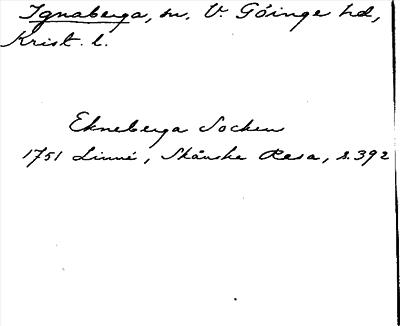 Ignaberga, sn. V. Göinge hd,
Krist. l.
Ekneberga Socken
1751 Linné, Skånske Resa, s. 392